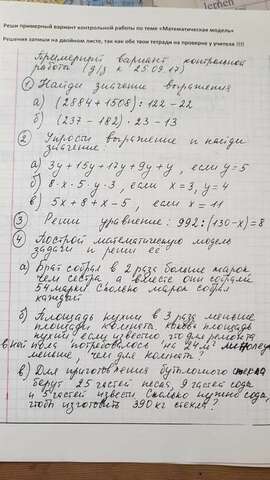 Реши примерный вариант контрольной работы по теме «Математическая модель»
Решения запиши на двойном листе, так как обе твои тетради на проверке у учителя !!!!
Примерный вариант контрольной
работы (д/з к 25.09.17)
① Найди значение выражения
а) (2884+1508):122-22
б) (237-182)·23-13
② Упрости выражение и найди
значение:
а) 3y+15y+17y+9y+y, если y=5
б) 8·x·5·y·3, если x=3, y=4
в) 5x+8+x-5, если x=11
③ Реши уравнение: 992:(130-x)=8
④ Построй математическую модель
задачи и реши её:
а) Брат собрал в 2 раза больше марок
чем сестра, а вместе они собрали
54 марки. Сколько марок собрал
каждый
б) Площадь кухни в 3 раза меньше
площади комнаты. Какова площадь
кухни, если известно что для ремонта
в ней пола потребовалось на 24 м²
меньше, чем для комнаты?
в) Для приготовления бутылочного стекла
берут 25 частей песка, 9 частей соды
и 5 частей извести. Сколько нужно соды,
чтоб изготовить 390 кг стекла?